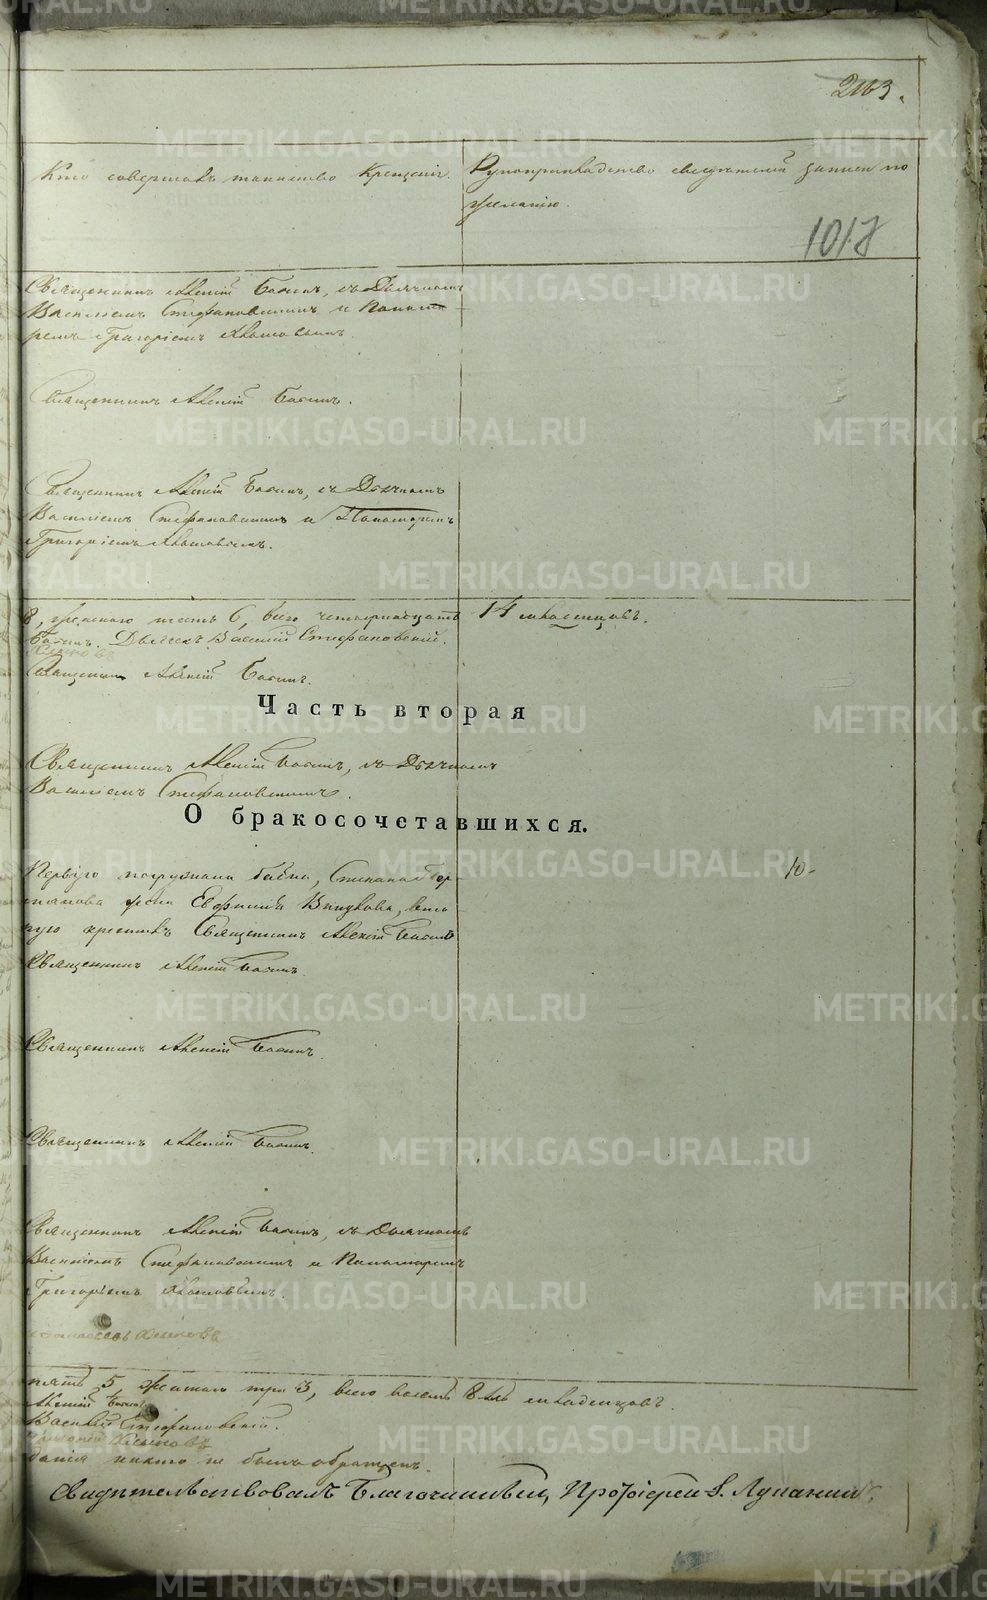 263.
Кто совершалъ таинство Крещенія.
Рукоприкладство свидѣтелей записи по
желанію.
1017
Священникъ Алексій Бабинъ, съ Дьячкомъ
Василіемъ Стефановскимъ и Понома-
ремъ Григоріемъ
Священникъ Алексій Бабинъ.
Священникъ Алексій Бабинъ, съ Дьячкомъ
Василіемъ Стефановскимъ и Пономаремъ
Григоріемъ
8, женскаго шесть 6, всего четырнадцать 14 младенцовъ.
Бабинъ. Дьячекъ Василий Стефановскій.
Священникъ Алексій Бабинъ.
Часть вторая
Священникъ Алексій Бабинъ, съ Дьячкомъ
Василіемъ Стефановскимъ.
О бракосочетавшихся.
10.
Первѣе погружала бабка,
жена Евфимія
Священникъ Алексій Бабинъ
Священникъ Алексій Бабинъ.
Священникъ Алексій Бабинъ.
Священникъ Алексій Бабинъ.
Священникъ Алексій Бабинъ, съ Дьячкомъ
Василіемъ Стефановскимъ и Пономаремъ
Григоріемъ
пять 5 женскаго три 3, всего восемь 8 младенцовъ.
Алексій Бабинъ
Василій Стефановскій.
никто не былъ обращенъ.
Свидѣтельствовалъ Благочинный, Протоіерей
METRIKI.GASO-URAL.RU